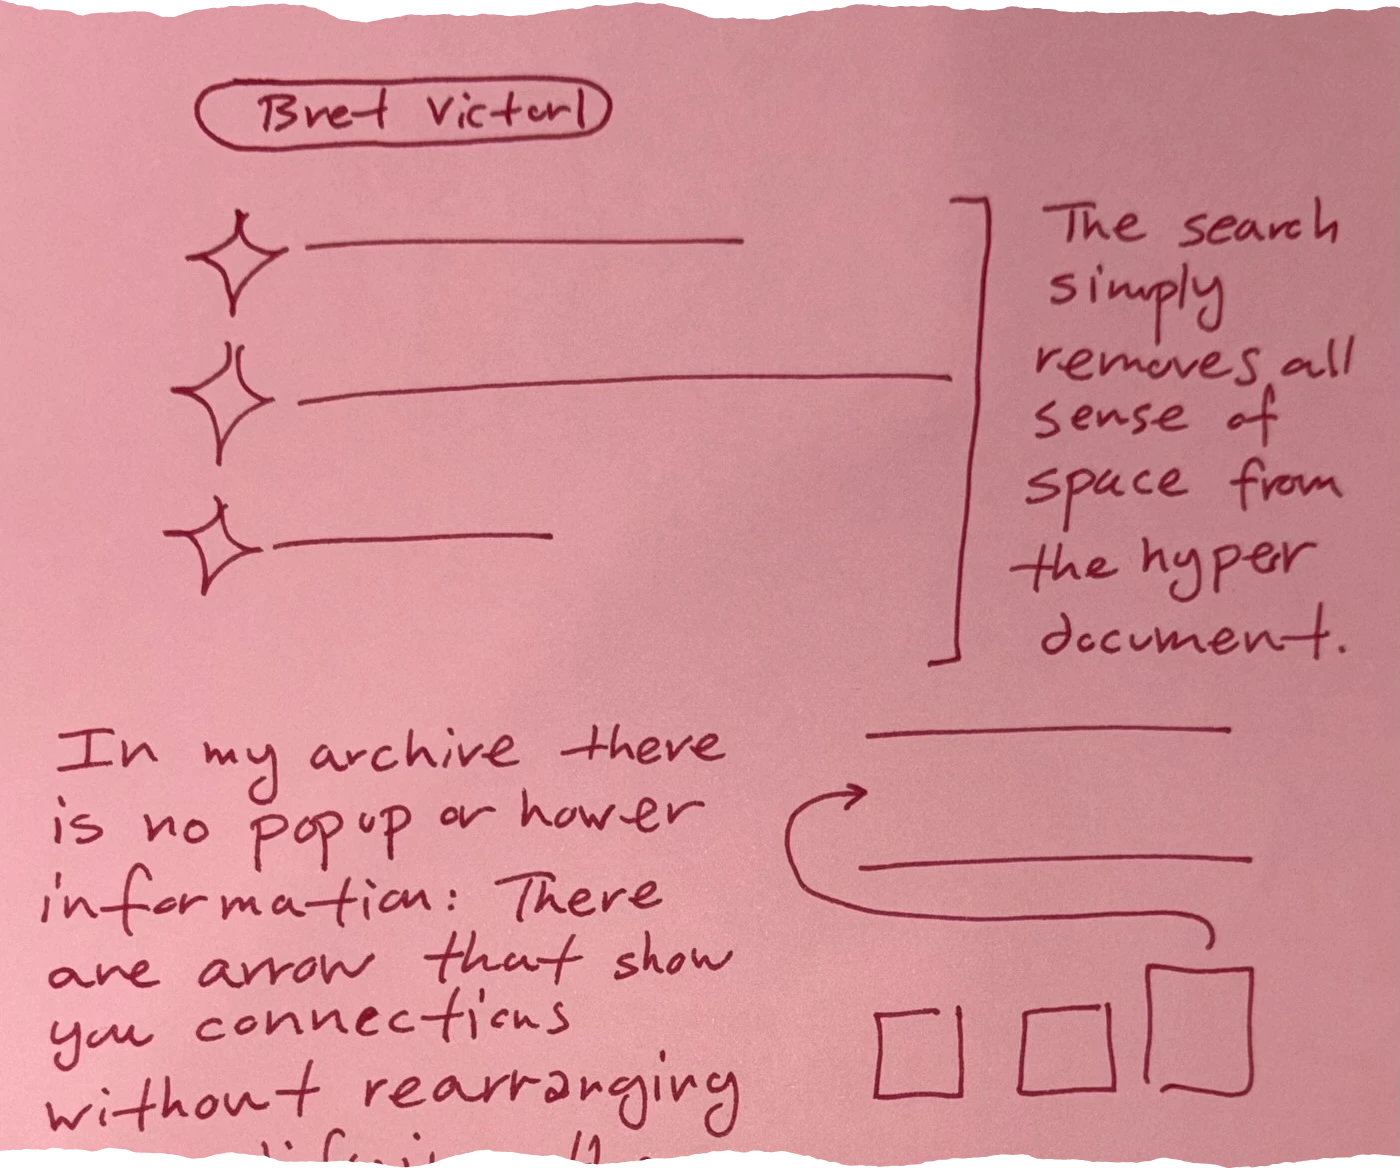 Bret Victor
The search
simply
removes all
sense of
space from
the hyper
document.
In my archive there
is no popup or hower
information: There
are arrow that show
you connections
without rearranging